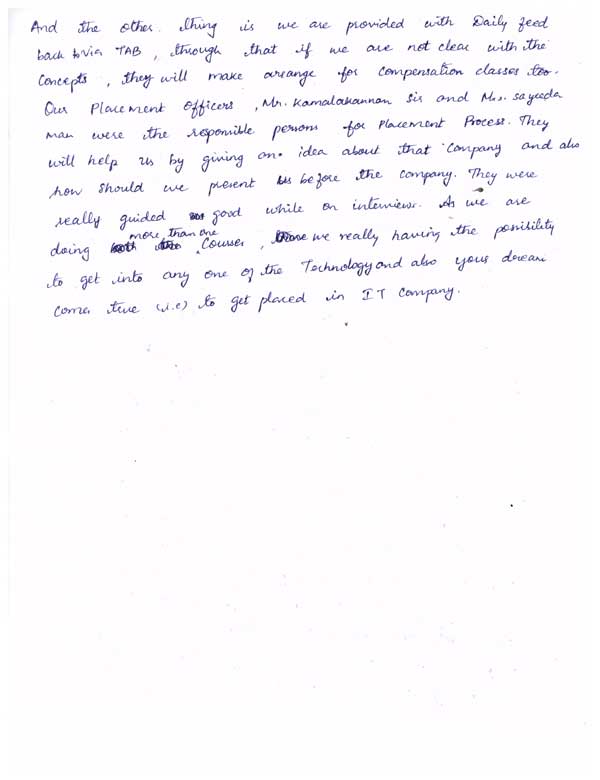 And the other thing is we are provided with Daily feed
back via TAB, through that if we are not clear with the
Concepts, they will make arrange for Compensation classes too.
Our Placement Officers, Mr. Kamalakannan Sir and Mrs. Sayeeda
mam were the responsible persons for Placement Process. They
will help us by giving an idea about that Company and also
how should we present us before the Company. They were
really guided good while on interview. As we are
doing more than one Courses, we really having the possibility
to get into any one of the Technology and also your dream
comes true (i.e) to get placed in IT Company.